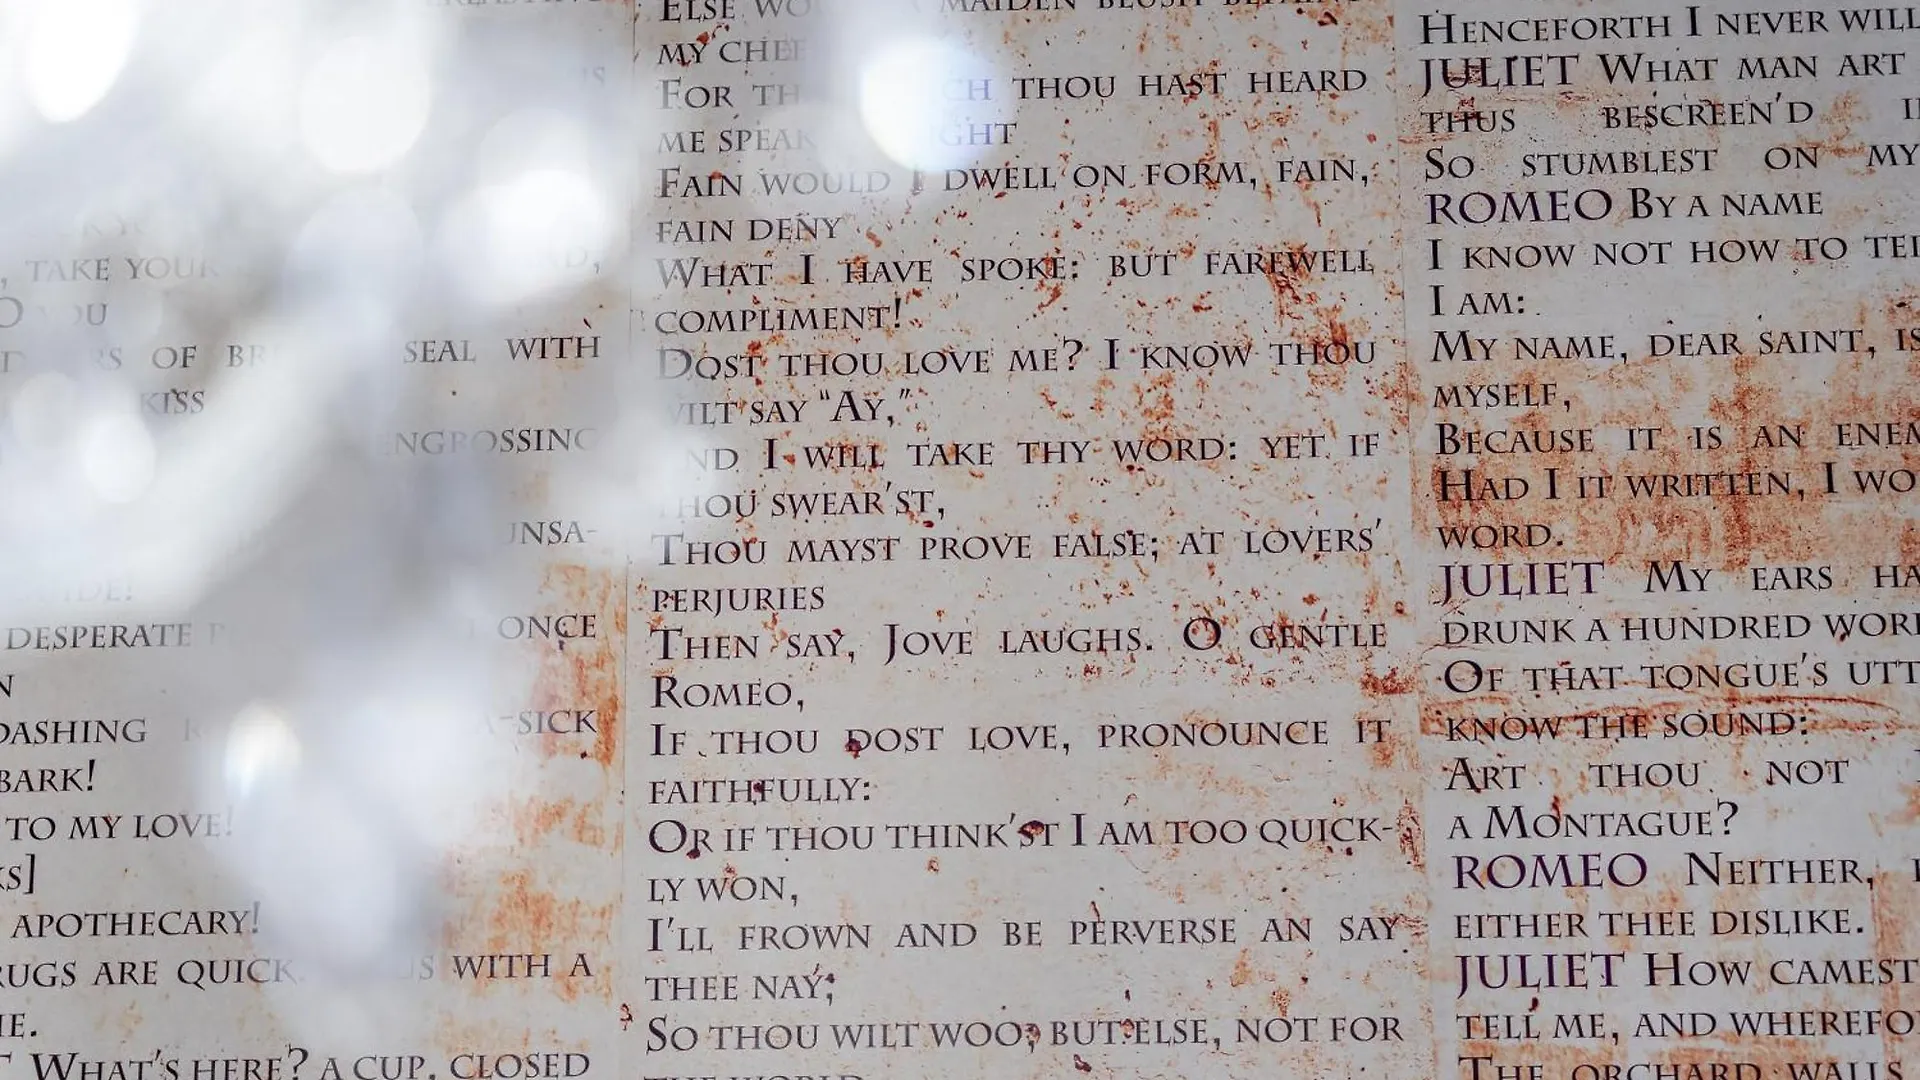 TAKE YOUR
OF
SEAL WITH
KISS
ENGROSSING
UNSA-
DESPERATE
ONCE
DASHING
-SICK
BARK!
TO MY LOVE!
APOTHECARY!
ARE QUICK. WITH A
WHAT'S HERE? A CUP, CLOSED
ELSE MAIDEN BLUSH
MY
FOR THOU HAST HEARD
ME SPEAK
FAIN WOULD I DWELL ON FORM, FAIN,
FAIN DENY
WHAT I HAVE SPOKE: BUT FAREWELL
COMPLIMENT!
DOST THOU LOVE ME? I KNOW THOU
WILT SAY “AY,”
AND I WILL TAKE THY WORD: YET IF
THOU SWEAR'ST,
THOU MAYST PROVE FALSE; AT LOVERS'
PERJURIES
THEN SAY, JOVE LAUGHS. O GENTLE
ROMEO,
IF THOU DOST LOVE, PRONOUNCE IT
FAITHFULLY:
OR IF THOU THINK'ST I AM TOO QUICK-
LY WON,
I'LL FROWN AND BE PERVERSE AN SAY
THEE NAY;
SO THOU WILT WOO; BUT ELSE, NOT FOR
HENCEFORTH I NEVER WILL
JULIET WHAT MAN ART
THUS BESCREEN'D
SO STUMBLEST ON MY
ROMEO BY A NAME
I KNOW NOT HOW TO
I AM:
MY NAME, DEAR SAINT, IS
MYSELF,
BECAUSE IT IS AN
HAD I IT WRITTEN, I
WORD.
JULIET MY EARS
DRUNK A HUNDRED
OF THAT TONGUE'S
KNOW THE SOUND:
ART THOU NOT
A MONTAGUE?
ROMEO NEITHER,
EITHER THEE DISLIKE.
JULIET HOW CAMEST
TELL ME, AND
THE ORCHARD WALLS